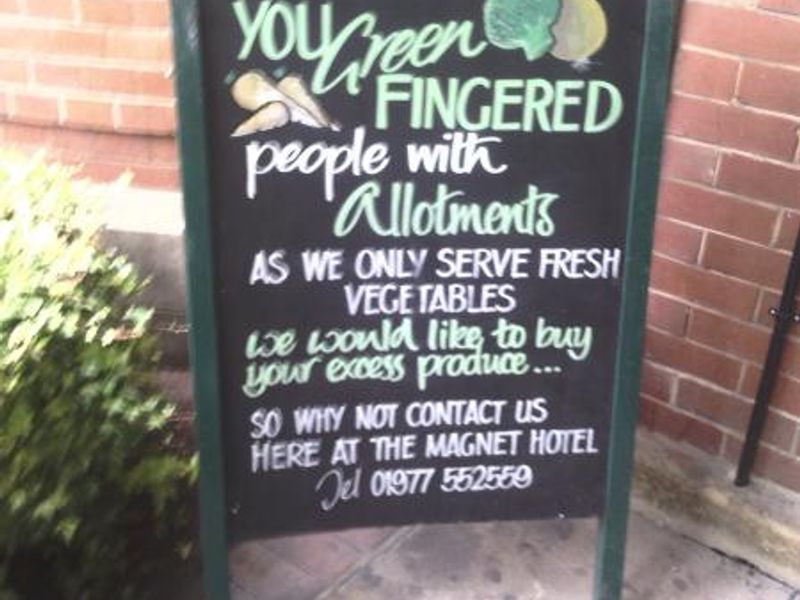 YOU Green
FINGERED
people with
Allotments
AS WE ONLY SERVE FRESH
VEGETABLES
we would like to buy
your excess produce...
SO WHY NOT CONTACT US
HERE AT THE MAGNET HOTEL
Tel 01977 552559